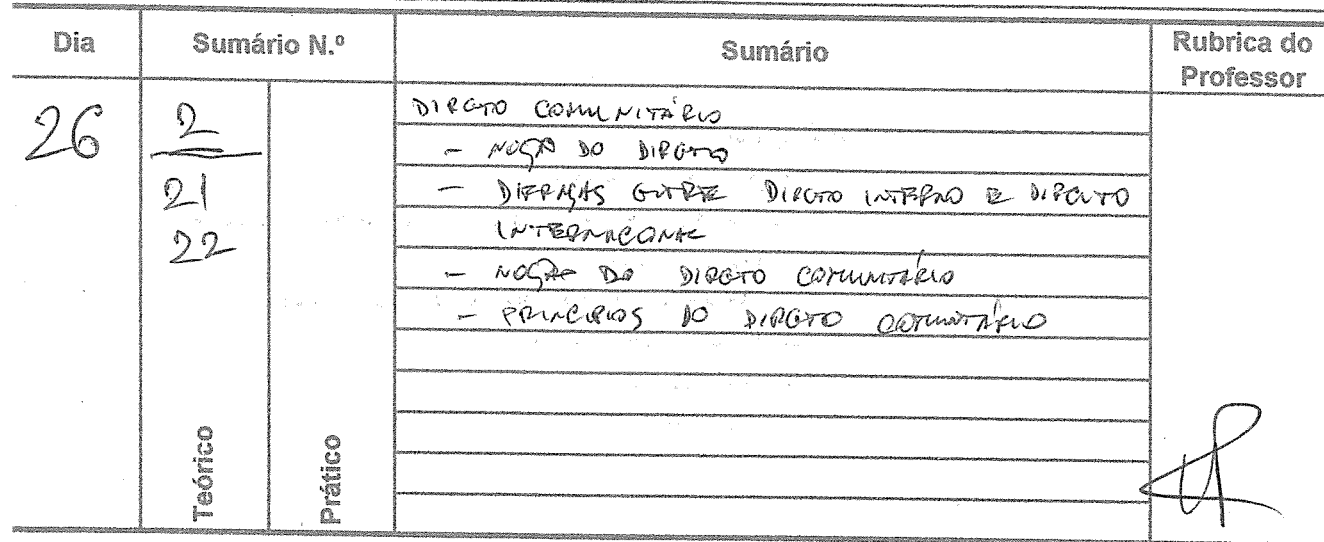 Dia Sumário N.º Sumário Rubrica do Professor
26 2 DIREITO COMUNITÁRIO
21 - NOÇÃO DO DIREITO
22 - DIFERENÇAS ENTRE DIREITO INTERNO E DIREITO
INTERNACIONAL
- NOÇÃO DO DIREITO COMUNITÁRIO
- PRINCIPIOS DO DIREITO COMUNITÁRIO
Teórico Prático